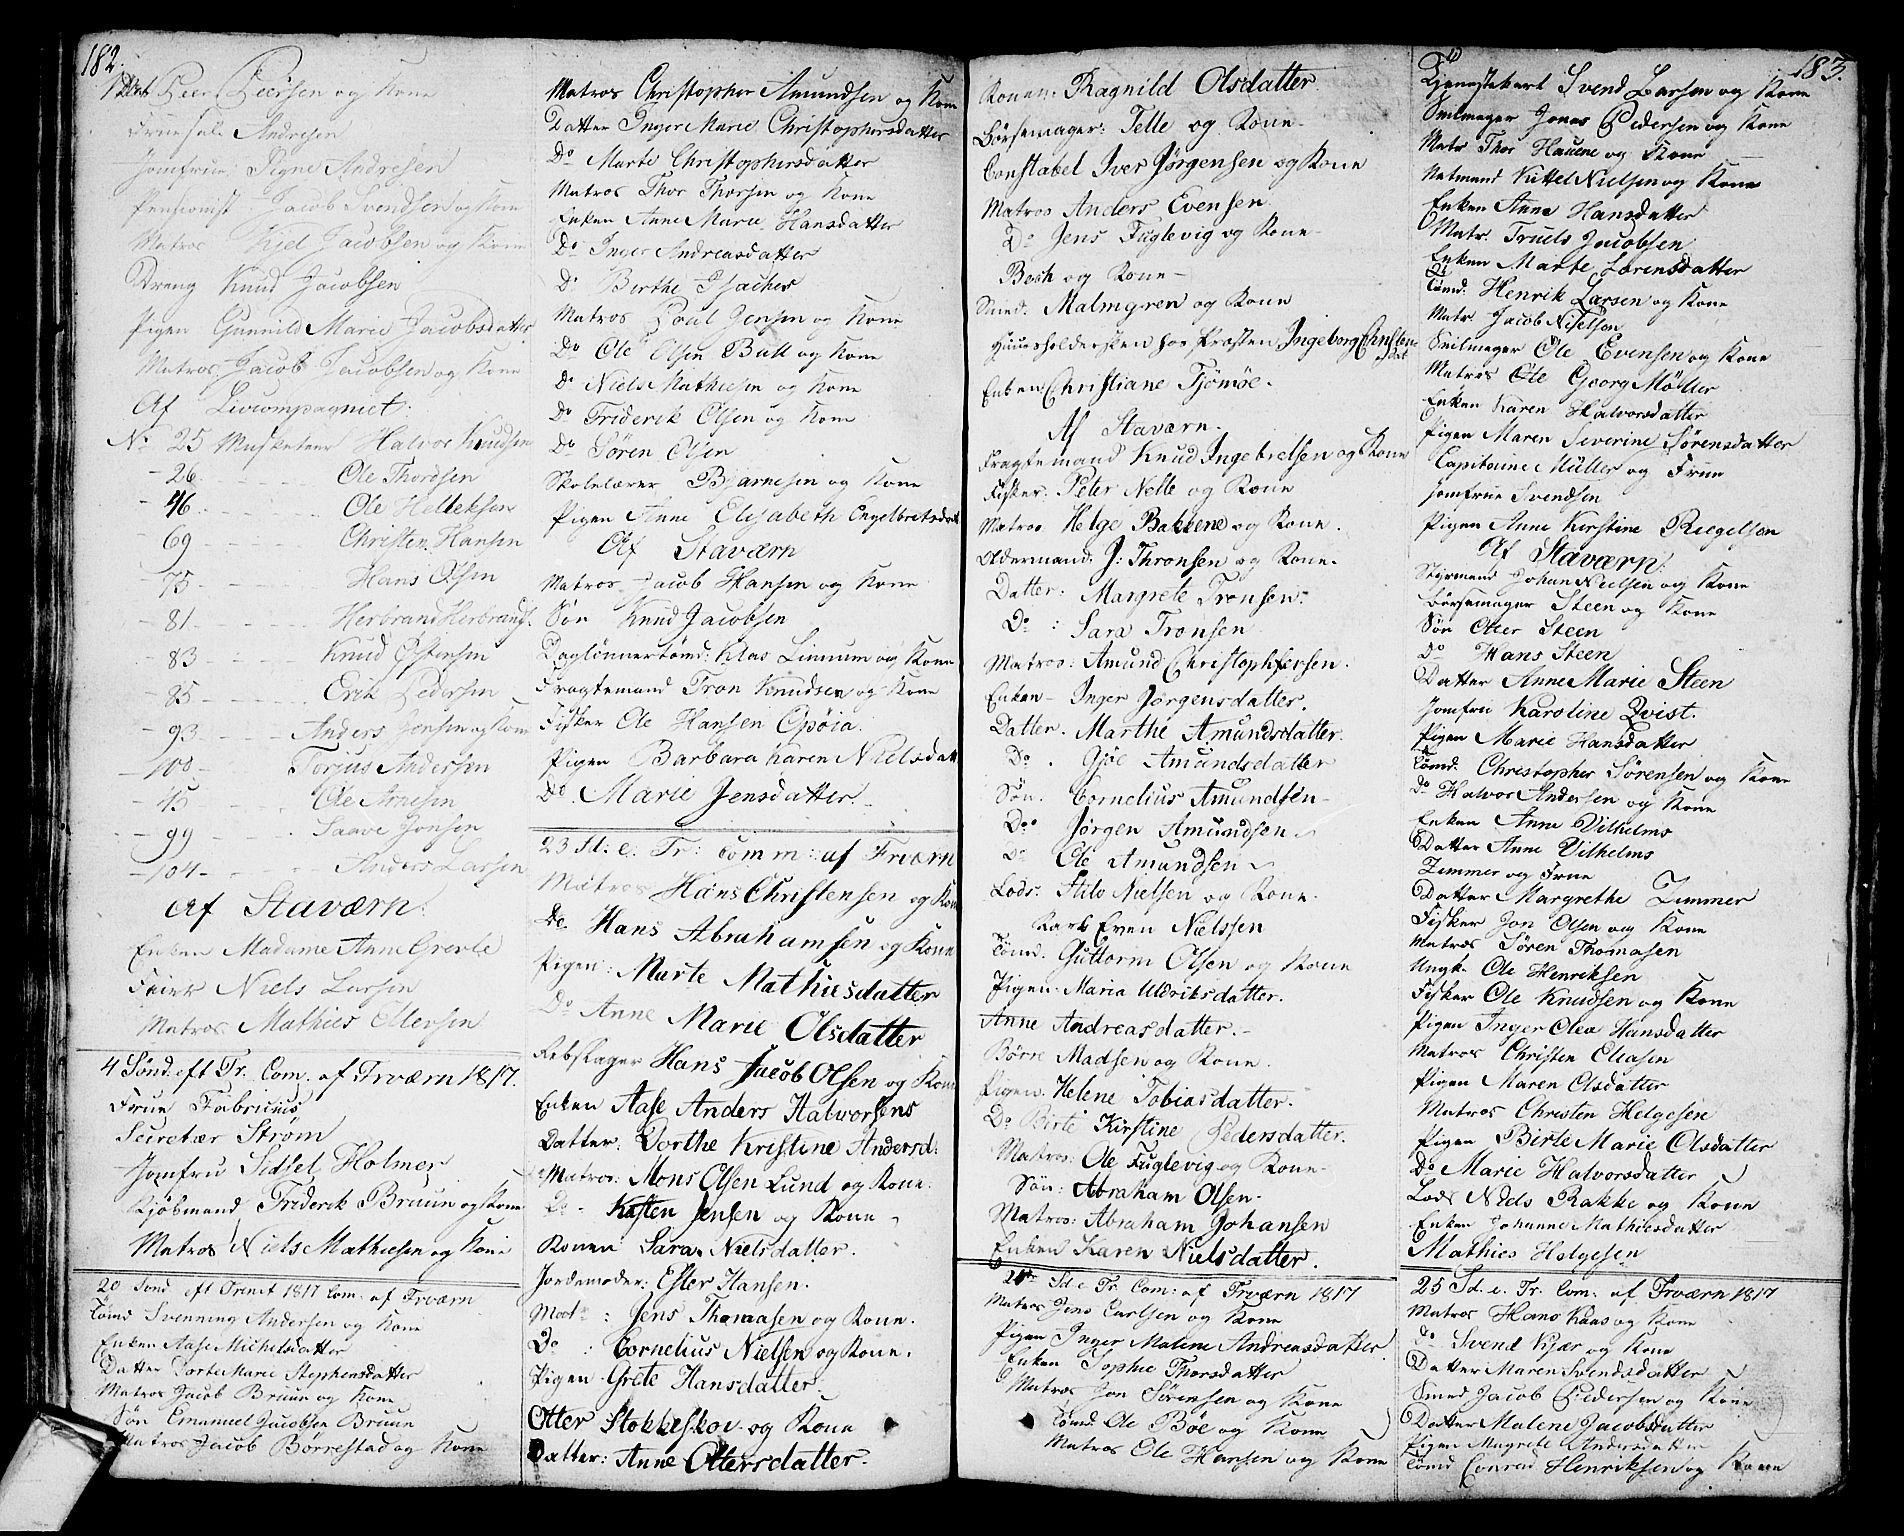 182.
Peer Peersen og Kone
Andresen
Jomfrue Signe Andresen
Pensionist Jacob Svendsen og Kone
Matros Kiel Jacobsen og Kone
Dreng Knud Jacobsen
Pigen Gunnild Marie Jacobsdatter
Matros Jacob Jacobsen og Kone
Af Livcompagniet:
No 25 Musketeer Halvor Knudsen
- 26 - - - - Ole Thordsen
- 46 - - - - Ole Helleksen
69 - - - - Christen Hansen
75 - - - - Hans Olsen
- 81 - - - Herbrand Herbrands.
- 83 - - - Knud Østensen
- 85 - - - Erik Pedersen
- 93 - - - Anders Jensen og Kone
- 100 - - - Torjus Andersen
- 45 - - - Ole Arnesen
- 99 - - - Saave Jonsen
- 104 - - - Anders Larsen
Af Staværn:
Enken Madame Anne Grerle
Niels Larsen
Matros Mathies Ottersen
4 Sønd: eft Tr. Com. af Frværn 1817.
Frue Fabrius
Secretær Strøm
Jomfru Sidsel Holmer
Kjøbmand Friderik Bruun og Kone
Matros Niels Mathiesen og Kone
20 Sond eft Trinit 1817 Com. af Frværn
Tømd Svenning Andersen og Kone
Enken Aase Michelsdatter
Datter Dorte Marie Stephensdatter
Matros Jacob Bruun og Kone
Søn Emanuel Jacobsen Bruun
Matros Jacob Børrestad og Kone
Matros Christopher Amundsen og Kone
Datter Inger Marie Christophersdatter
Do Marte Christophersdatter
Matros Thor Thorsen og Kone
Enken Anne Marie Hansdatter
Do Inger Andreasdatter
Do Birthe Isaches
Matros Poul Jensen og Kone
Do Ole Olsen Bull og Kone
Do Niels Mathiesen og Kone
Do Friderik Olsen og Kone
Do Sören Olsen
Skolelærer Bjarnesen og Kone
Pigen Anne Elisabeth Engelbretsdat
Af Staværn
Matros Jacob Hansen og Kone
Søn Knud Jacobsen
Daglönnertømd: Klas Linnum og Kone
Fragtemand Tron Knudsen og Kone
Fisker Ole Hansen Opöia.
Pigen Barbara Karen Nielsdatt
Do Marie Jensdatter.
23 St: e: Tr: Comm: af Frværn
Matros Hans Christensen og Kone
Do Hans Abrahamsen og Kone
Pigen: Marte Mathiesdatter
Do Anne Marie Olsdatter
Rebslager Hans Jacob Olsen og Kone
Enken Aase Anders Halvorsens
Datter: Dorthe Kristine Andersd:
Matros: Mons Olsen Lund og Kone.
Do - Kasten Jensen og Kone
Konen Sara Nielsdatter.
Jordemoder: Ester Hansen.
Mat: Jens Thomasen og Kone.
Do : Cornelius Nielsen og Kone.
Pigen Grete Hansdatter
Otter Stokkeskov og Kone
Datter: Anne Ottersdatter.
Konen: Ragnild Olsdatter.
Börsemager: Telle og Kone
Constabel Iver Jörgensen og Kone
Matros Anders Evensen.
Do Jens Fuglevig og Kone
Bosh og Kone
Smed. Malmgren og Kone
Huusholdersken hos Præsten Ingeborg Christens
dat
Enken Christiane Tjömöe.
Af Staværn.
Fragtemand Knud Ingebretsen og Kone
Fisker: Peter Nelle og Kone
Matros Helge Bakkene og Kone.
Oldermand: J: Thronsen og Kone.
Datter: Margrete Tronsen.
Do : Sara Tronsen
Matros: Amund Christophersen.
Enken - Inger Jørgensdatter.
Datter. Marthe Amundsdatter.
Do . Gjöe Amundsdatter
Sön. Cornelius Amundsen
Do Jörgen Amundsen
Do Ole Amundsen
Lods: Stilo Nielsen og Kone.
Even Nielssen
Tömd. Guttorm Olsen og Kone
Pigen: Maria Uldriksdatter.
Anne Andreasdatter.
Börre Madsen og Kone.
Pigen. Helene Tobiasdatter.
Do Birte Kirstine Pedersdatter.
Matros: Ole Fuglevig og Kone
Søn: Abraham Olsen.
Matros: Abraham Johansen
Enken Karen Nielsdatter.
Sd. e Tr. Com: af Frværn 1817
Matros Jens Carlsen og Kone
Pigen Inger Malene Andreasdatter
Enken Sophie Thorsdatter
Matros Jon Sørensen og Kone
Tømd. Ole Bøe og Kone
Matros Ole Hansen og Kone
183.
Svend Larsen og Kone
Seilmager Jonas Pedersen og Kone
Matr Thor Hauene og Kone
Natmand Kittel Nielsen og Kone
Enken Anne Hansdatter
Matr. Truels Jacobsen
Enken Marte Lorensdatter
Tømd. Henrik Larsen og Kone
Matr Jacob Nielsen
Seilmager Ole Evensen og Kone
Matros Ole Georg Møller
Enken Karen Halvorsdatter
Pigen Maren Severine Sørensdatter
Capitaine Müller og Frue
Jomfrue Svendsen
Pigen Anne Kirstine Riegelsen
Af Staværn:
Styrmand Johan Nielsen og Kone
Børsemager Steen og Kone
Søn Otter Steen
Do Hans Steen
Datter Anne Marie Steen
Jomfru Karoline Qvist.
Pigen Marie Hansdatter
Tømd. Christopher Sørensen og Kone
Do Halvor Andersen og Kone
Enken Anne Vilhelms
Datter Anne Vilhelms
Zimmer og Frue
Datter Margrethe Zimmer
Fisker Jon Olsen og Kone
Matros Søren Thomasen
Ungk. Ole Henriksen
Fisker Ole Knudsen og Kone
Pigen Inger Olea Hansdatter
Matros Christen Eliasen
Pigen Maren Olsdatter
Matros Christen Helgesen
Pigen Birte Marie Olsdatter
Do Marie Halvorsdatter
Lods Niels Rakke og Kone
Enken Johanne Mathiesdatter
Mathies Helgesen
25 Sd. e. Tr. Com. af Frværn 1817
Matros Hans Kaas og Kone
Do Svend Kjær og Kone
Datter Maren Svendsdatter
Smed Jacob Pedersen og Kone
Datter Malene Jacobsdatter
Pigen Magrete Andersdatter
Tømd Conrad Henriksen og Kone